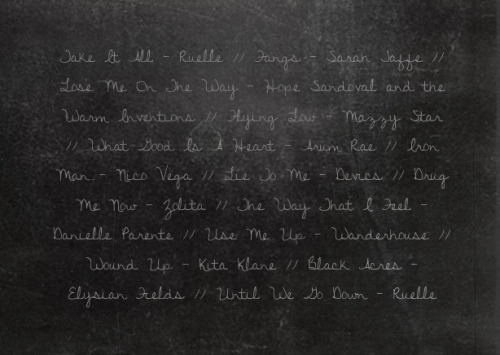 Take It All - Ruelle // Fangs - Sarah Jaffe //
Lose Me On The Way - Hope Sandoval and the
Warm Inventions // Flying Low - Mazzy Star
// What Good Is A Heart - Arum Rae // Iron
Man - Nico Vega // Lie To Me - Devics // Drug
Me Now - Zolita // The Way That I Feel -
Danielle Parente // Use Me Up - Wanderhouse //
Wound Up - Kita Klane // Black Acres -
Elysian Fields // Until We Go Down - Ruelle